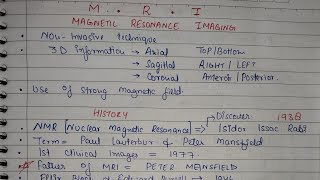 M . R . I
MAGNETIC RESONANCE IMAGING
• Non-Invasive technique
• 3D information → Axial Top/Bottom
→ Sagittal RIGHT/LEFT
→ Coronal Anterior/Posterior.
• Use of Strong Magnetic field.
HISTORY
→ Discover: 1938
• NMR [Nuclear Magnetic Resonance] => Isidor Issac Rabi
• Term = Paul Lauterbur & Peter Mansfield
• Ist Clinical Images = 1977.
Father of MRI = PETER MEINSFIELD
Felix Bloch & Edward 1946